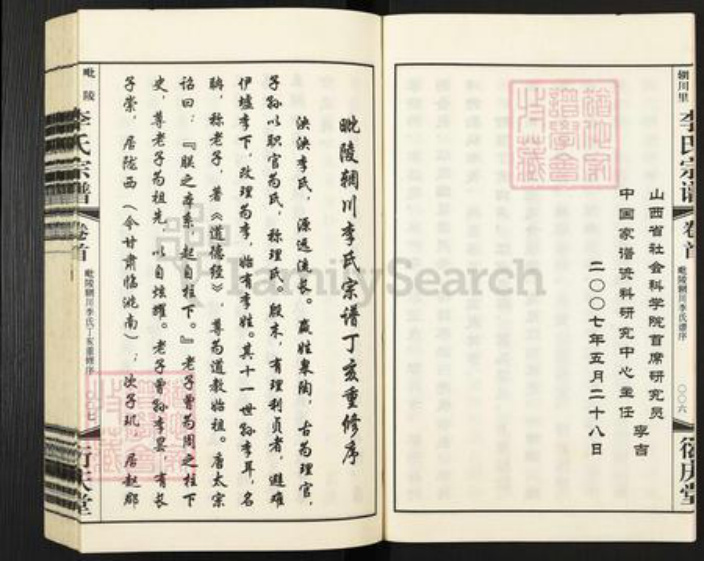 辋川里
李氏宗谱
卷首
毗陵辋川李氏谱序
〇〇六
衍庆堂
山西省社会科学院首席研究员
中国家谱资料研究中心主任
李吉
二〇〇七年五月二十八日
毗陵辋川李氏宗谱丁亥重修序
泱泱李氏，源远流长。嬴姓皋陶，古为理官，
子孙以职官为氏，称理氏。殷末，有理利贞者，避难
伊墟李下，改理为李，始有李姓。其十一世孙李耳，名
聃，称老子，著《道德经》，尊为道教始祖。唐太宗
诏曰：『朕之本系，起自柱下。』老子曾为周之柱下
史，尊老子为祖先，以自炫耀。老子曾孙李昙，有长
子崇，居陇西（今甘肃临洮南）；次子玑，居赵郡
毗陵
李氏宗谱
卷首
毗陵辋川李氏丁亥重修序
〇〇七
衍庆堂
FamilySearch